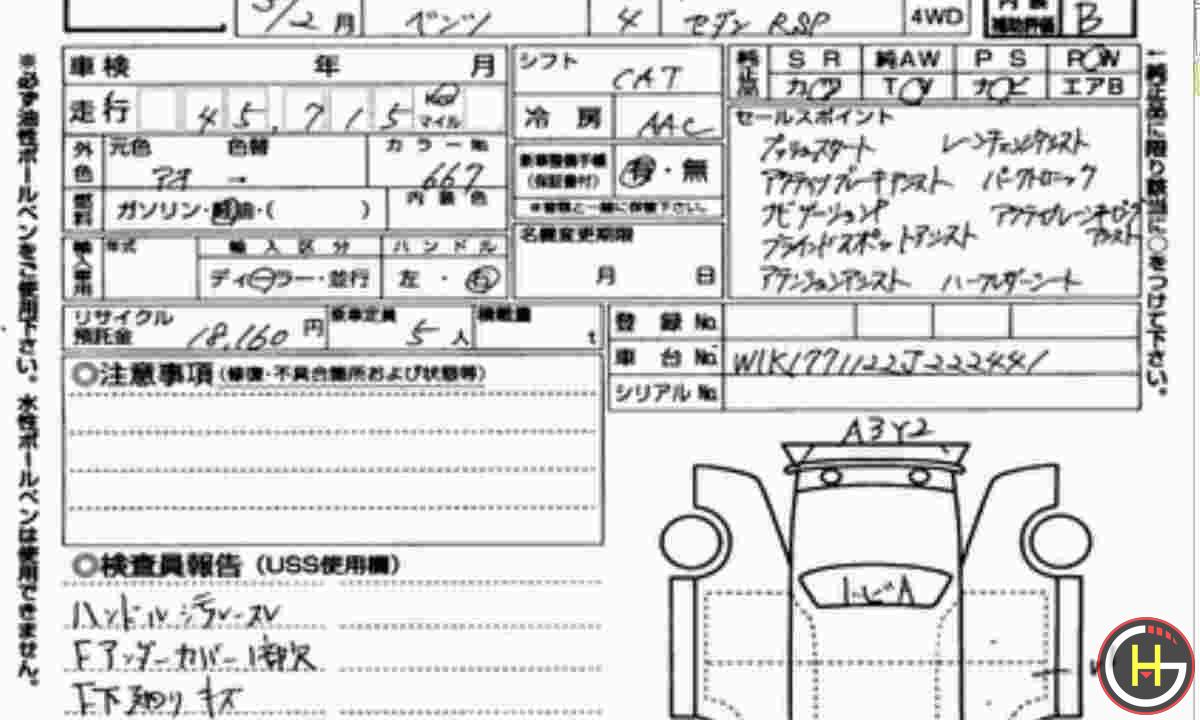 ベンツ 4 セダン RSP 4WD B
補助評価
車検 年 月 シフト CAT 純正品 SR 純AW PS ROW
カワ TV ナビ エアB
走行 45,715 マイル 冷房 AAC セールスポイント
プッシュスタート レーンチェンジアシスト
外色 元色 色替 カラーNo.
アオ → 667 新車整備手帳(保証書付) 有・無 アクティブブレーキアシスト パークトロニック
燃料 ガソリン・軽油・( ) 内装色 ※書類と一緒に保管下さい。 ナビゲーション アクティブレーンキーピングアシスト
ブラインドスポットアシスト
輸入車用 年式 輸入区分 ハンドル 名義変更期限
ディーラー・並行 左・右 月 日 アテンションアシスト ハーフレザーシート
リサイクル預託金 18,160円 乗車定員 5人 積載量 t 登録No.
車台No. W1K1771122J222441
シリアルNo.
◎注意事項(修復・不具合箇所および状態等)
A3 Y2
トビA
◎検査員報告(USS使用欄)
ハンドルシラレースレ
Fアンダーカバー1部欠
F下廻りキズ
※必ず油性ボールペンをご使用下さい。水性ボールペンは使用できません。
↑純正品に限り該当に○をつけて下さい。